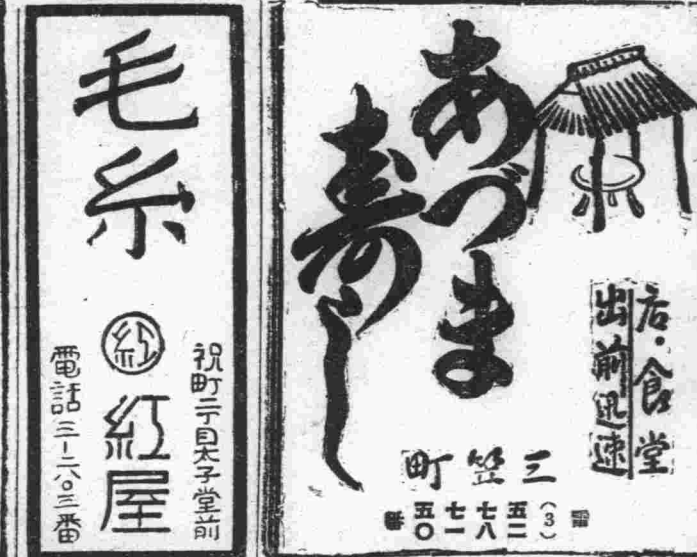 店・食堂
出前迅速
あづま
寿し
三笠町
電(3)五七七五番
二八一〇
毛糸
祝町二丁目太子堂前
紅
紅屋
電話三ー二八〇三番